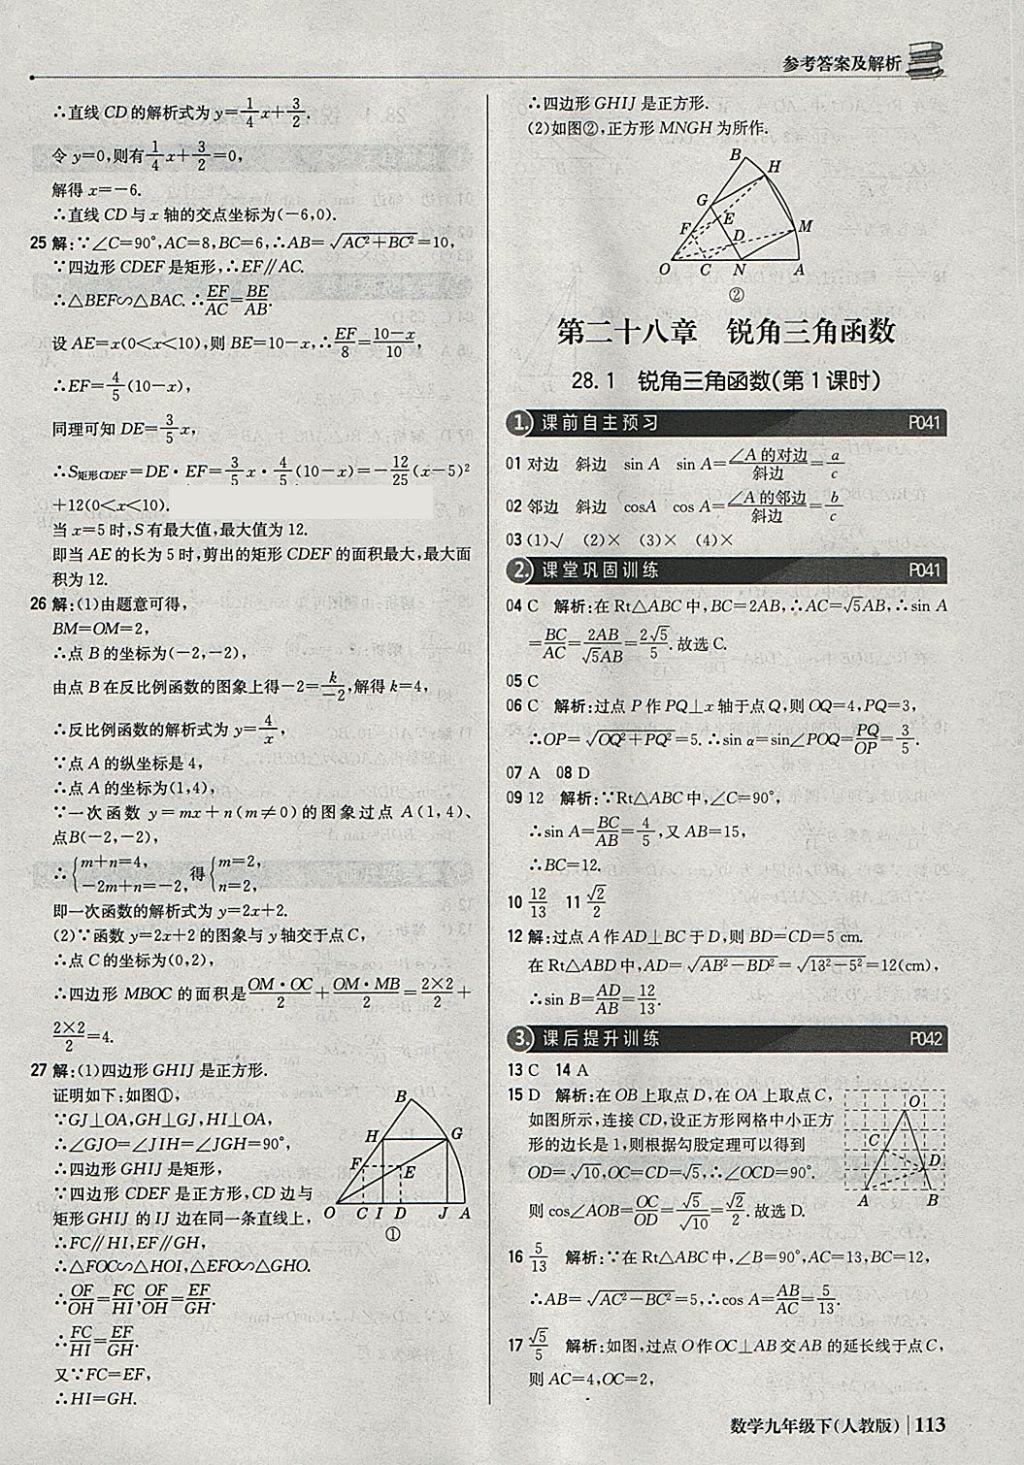 参考答案及解析
∴直线CD的解析式为y=1/4x+3/2.
令y=0,则有1/4x+3/2=0,
解得x=-6.
∴直线CD与x轴的交点坐标为(-6,0).
25 解:∵∠C=90°,AC=8,BC=6,∴AB=√(AC²+BC²)=10,
∵四边形CDEF是矩形,∴EF∥AC.
∴△BEF∽△BAC. ∴EF/AC=BE/AB.
设AE=x(0<x<10),则BE=10-x,∴EF/8=(10-x)/10,
∴EF=4/5(10-x),
同理可知DE=3/5x,
∴S矩形CDEF=DE·EF=3/5x·4/5(10-x)=-12/25(x-5)²
+12(0<x<10).
当x=5时,S有最大值,最大值为12.
即当AE的长为5时,剪出的矩形CDEF的面积最大,最大面
积为12.
26 解:(1)由题意可得,
BM=OM=2,
∴点B的坐标为(-2,-2),
由点B在反比例函数的图象上得-2=k/-2,解得k=4,
∴反比例函数的解析式为y=4/x,
∵点A的纵坐标是4,
∴点A的坐标为(1,4),
∵一次函数y=mx+n(m≠0)的图象过点A(1,4)、
点B(-2,-2),
∴{m+n=4, -2m+n=-2, 得{m=2, n=2,
即一次函数的解析式为y=2x+2.
(2)∵函数y=2x+2的图象与y轴交于点C,
∴点C的坐标为(0,2),
∴四边形MBOC的面积是OM·OC/2+OM·MB/2=2×2/2+
2×2/2=4.
27 解:(1)四边形GHIJ是正方形.
证明如下:如图①,
∵GJ⊥OA,GH⊥GJ,HI⊥OA,
∴∠GJO=∠JIH=∠JGH=90°,
∴四边形GHIJ是矩形,
∵四边形CDEF是正方形,CD边与
矩形GHIJ的IJ边在同一条直线上,
∴FC∥HI,EF∥GH,
∴△FOC∽△HOI,△EFO∽△GHO.
∴OF/OH=FC/HI,OF/OH=EF/GH.
∴FC/HI=EF/GH.
又∵FC=EF,
∴HI=GH.
B
H G
F E
O C I D J A
①
∴四边形GHIJ是正方形.
(2)如图②,正方形MNGH为所作.
B
H
G
F E
D M
O C N A
②
第二十八章 锐角三角函数
28.1 锐角三角函数(第1课时)
1. 课前自主预习 P041
01 对边 斜边 sin A sin A=∠A的对边/斜边=a/c
02 邻边 斜边 cosA cos A=∠A的邻边/斜边=b/c
03 (1)√ (2)× (3)× (4)×
2. 课堂巩固训练 P041
04 C 解析:在Rt△ABC中,BC=2AB,∴AC=√5AB,∴sin A
=BC/AC=2AB/√5AB=2√5/5.故选C.
05 C
06 C 解析:过点P作PQ⊥x轴于点Q,则OQ=4,PQ=3,
∴OP=√(OQ²+PQ²)=5.∴sin α=sin∠POQ=PQ/OP=3/5.
07 A 08 D
09 12 解析:∵Rt△ABC中,∠C=90°,
∴sin A=BC/AB=4/5,又AB=15,
∴BC=12.
10 12/13 11 √2/2
12 解:过点A作AD⊥BC于D,则BD=CD=5 cm.
在Rt△ABD中,AD=√(AB²-BD²)=√(13²-5²)=12(cm),
∴sin B=AD/AB=12/13.
3. 课后提升训练 P042
13 C 14 A
15 D 解析:在OB上取点D,在OA上取点C,
如图所示,连接CD,设正方形网格中小正方
形的边长是1,则根据勾股定理可以得到
OD=√10,OC=CD=√5,∴∠OCD=90°.
则cos∠AOB=OC/OD=√5/√10=√2/2.故选D.
O
C
D
A B
16 5/13 解析:∵在Rt△ABC中,∠B=90°,AC=13,BC=12,
∴AB=√(AC²-BC²)=5,∴cos A=AB/AC=5/13.
17 √5/5 解析:如图,过点O作OC⊥AB交AB的延长线于点C,
则AC=4,OC=2,
数学九年级下(人教版) 113